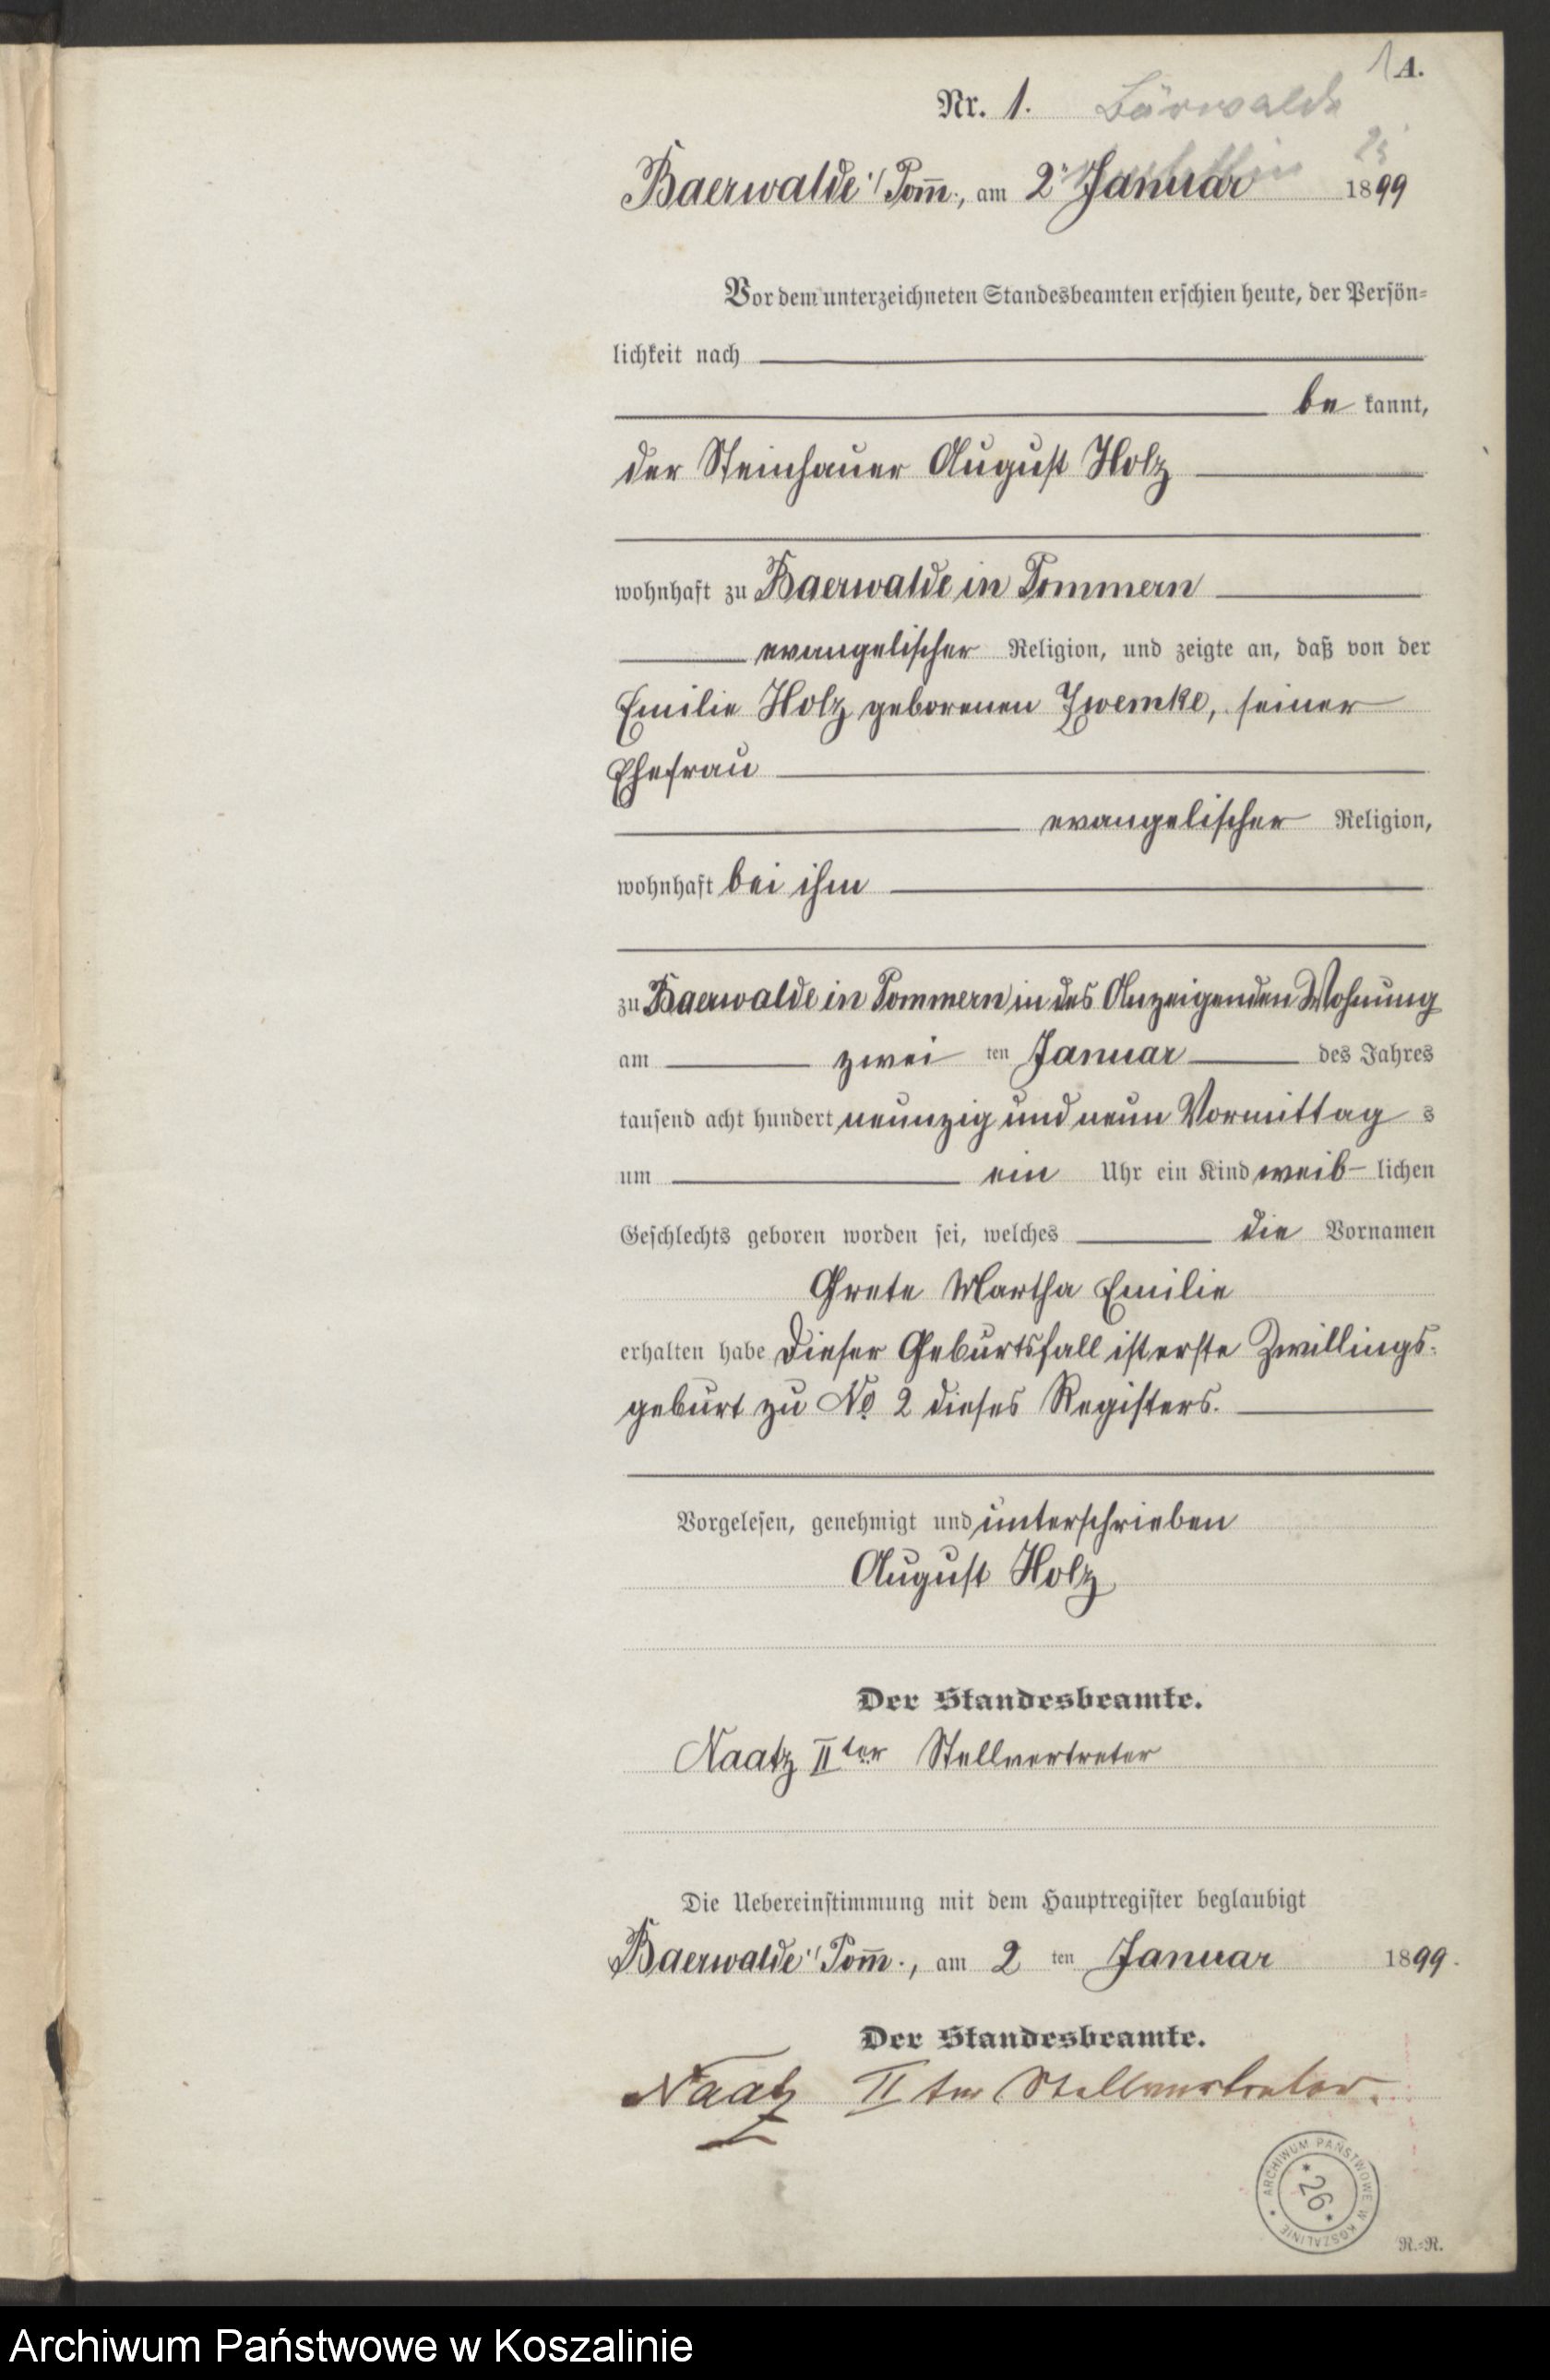 1 A.
Nr. 1. Bärwalde
Baerwalde i/Pom̅., am 2ⁿ Januar 1899
Vor dem unterzeichneten Standesbeamten erschien heute, der Persön=
lichkeit nach
be kannt,
der Steinhauer August Holz
wohnhaft zu Baerwalde in Pommern
evangelischer Religion, und zeigte an, daß von der
Emilie Holz geborenen Zwemke, seiner
Ehefrau
evangelischer Religion,
wohnhaft bei ihm
zu Baerwalde in Pommern in des Anzeigenden Wohnung
am zwei ten Januar des Jahres
tausend acht hundert neunzig und neun Vormittag s
um ein Uhr ein Kind weib- lichen
Geschlechts geboren worden sei, welches die Vornamen
Grete Martha Emilie
erhalten habe Dieser Geburtsfall ist erste Zwillings-
geburt zu No 2 dieses Registers.
Vorgelesen, genehmigt und unterschrieben
August Holz
Der Standesbeamte.
Naatz II ter Stellvertreter
Die Uebereinstimmung mit dem Hauptregister beglaubigt
Baerwalde i/Pom̅., am 2 ten Januar 1899.
Der Standesbeamte.
Naatz II ter Stellvertreter.
ARCHIWUM PAŃSTWOWE W KOSZALINIE
* 26 *
R.=R.
Archiwum Państwowe w Koszalinie